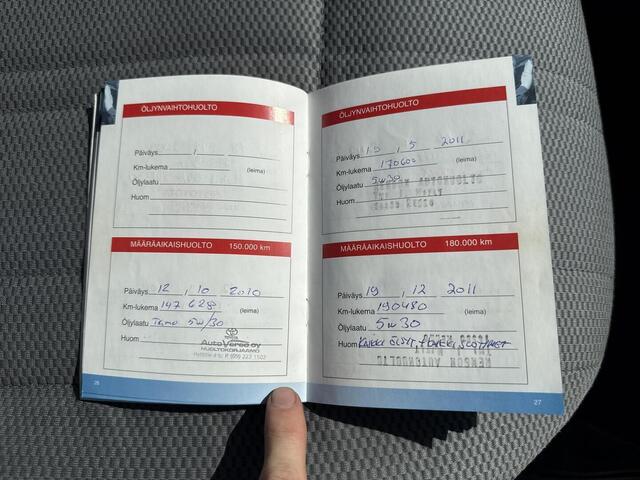 ÖLJYNVAIHTOHUOLTO
Päiväys
Km-lukema (leima)
Öljylaatu
Huom
MÄÄRÄAIKAISHUOLTO 150.000 km
Päiväys 12 , 10 2010
Km-lukema 147 628 (leima)
Öljylaatu 5w/30
Huom
TOYOTA
AutoVerso oy
HUOLTOKORJAAMO
26
ÖLJYNVAIHTOHUOLTO
Päiväys , 5 2011
Km-lukema 170600 (leima)
Öljylaatu 5w30
AUTOHUOLTO
Huom
MÄÄRÄAIKAISHUOLTO 180.000 km
Päiväys 19 , 12 2011
Km-lukema 190480 (leima)
Öljylaatu 5w30
Huom KAIKKI ÖLJYT +
AUTOHUOLTO
27